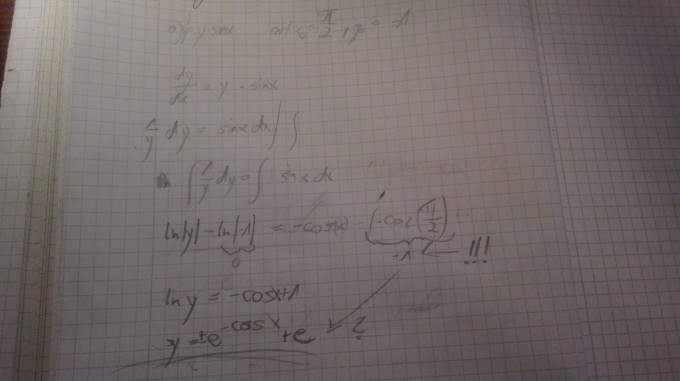 a) y' = y sinx mit x₀ = π/2, y₀ = -1
dy/dx = y · sinx
1/y dy = sinx dx | ∫
∫ 1/y dy = ∫ sinx dx
ln|y| - ln|-1| = -cos(x) - (-cos(π/2))
0 -1 ← !!!
ln y = -cosx+1
y = ±e^-cosx + e ?